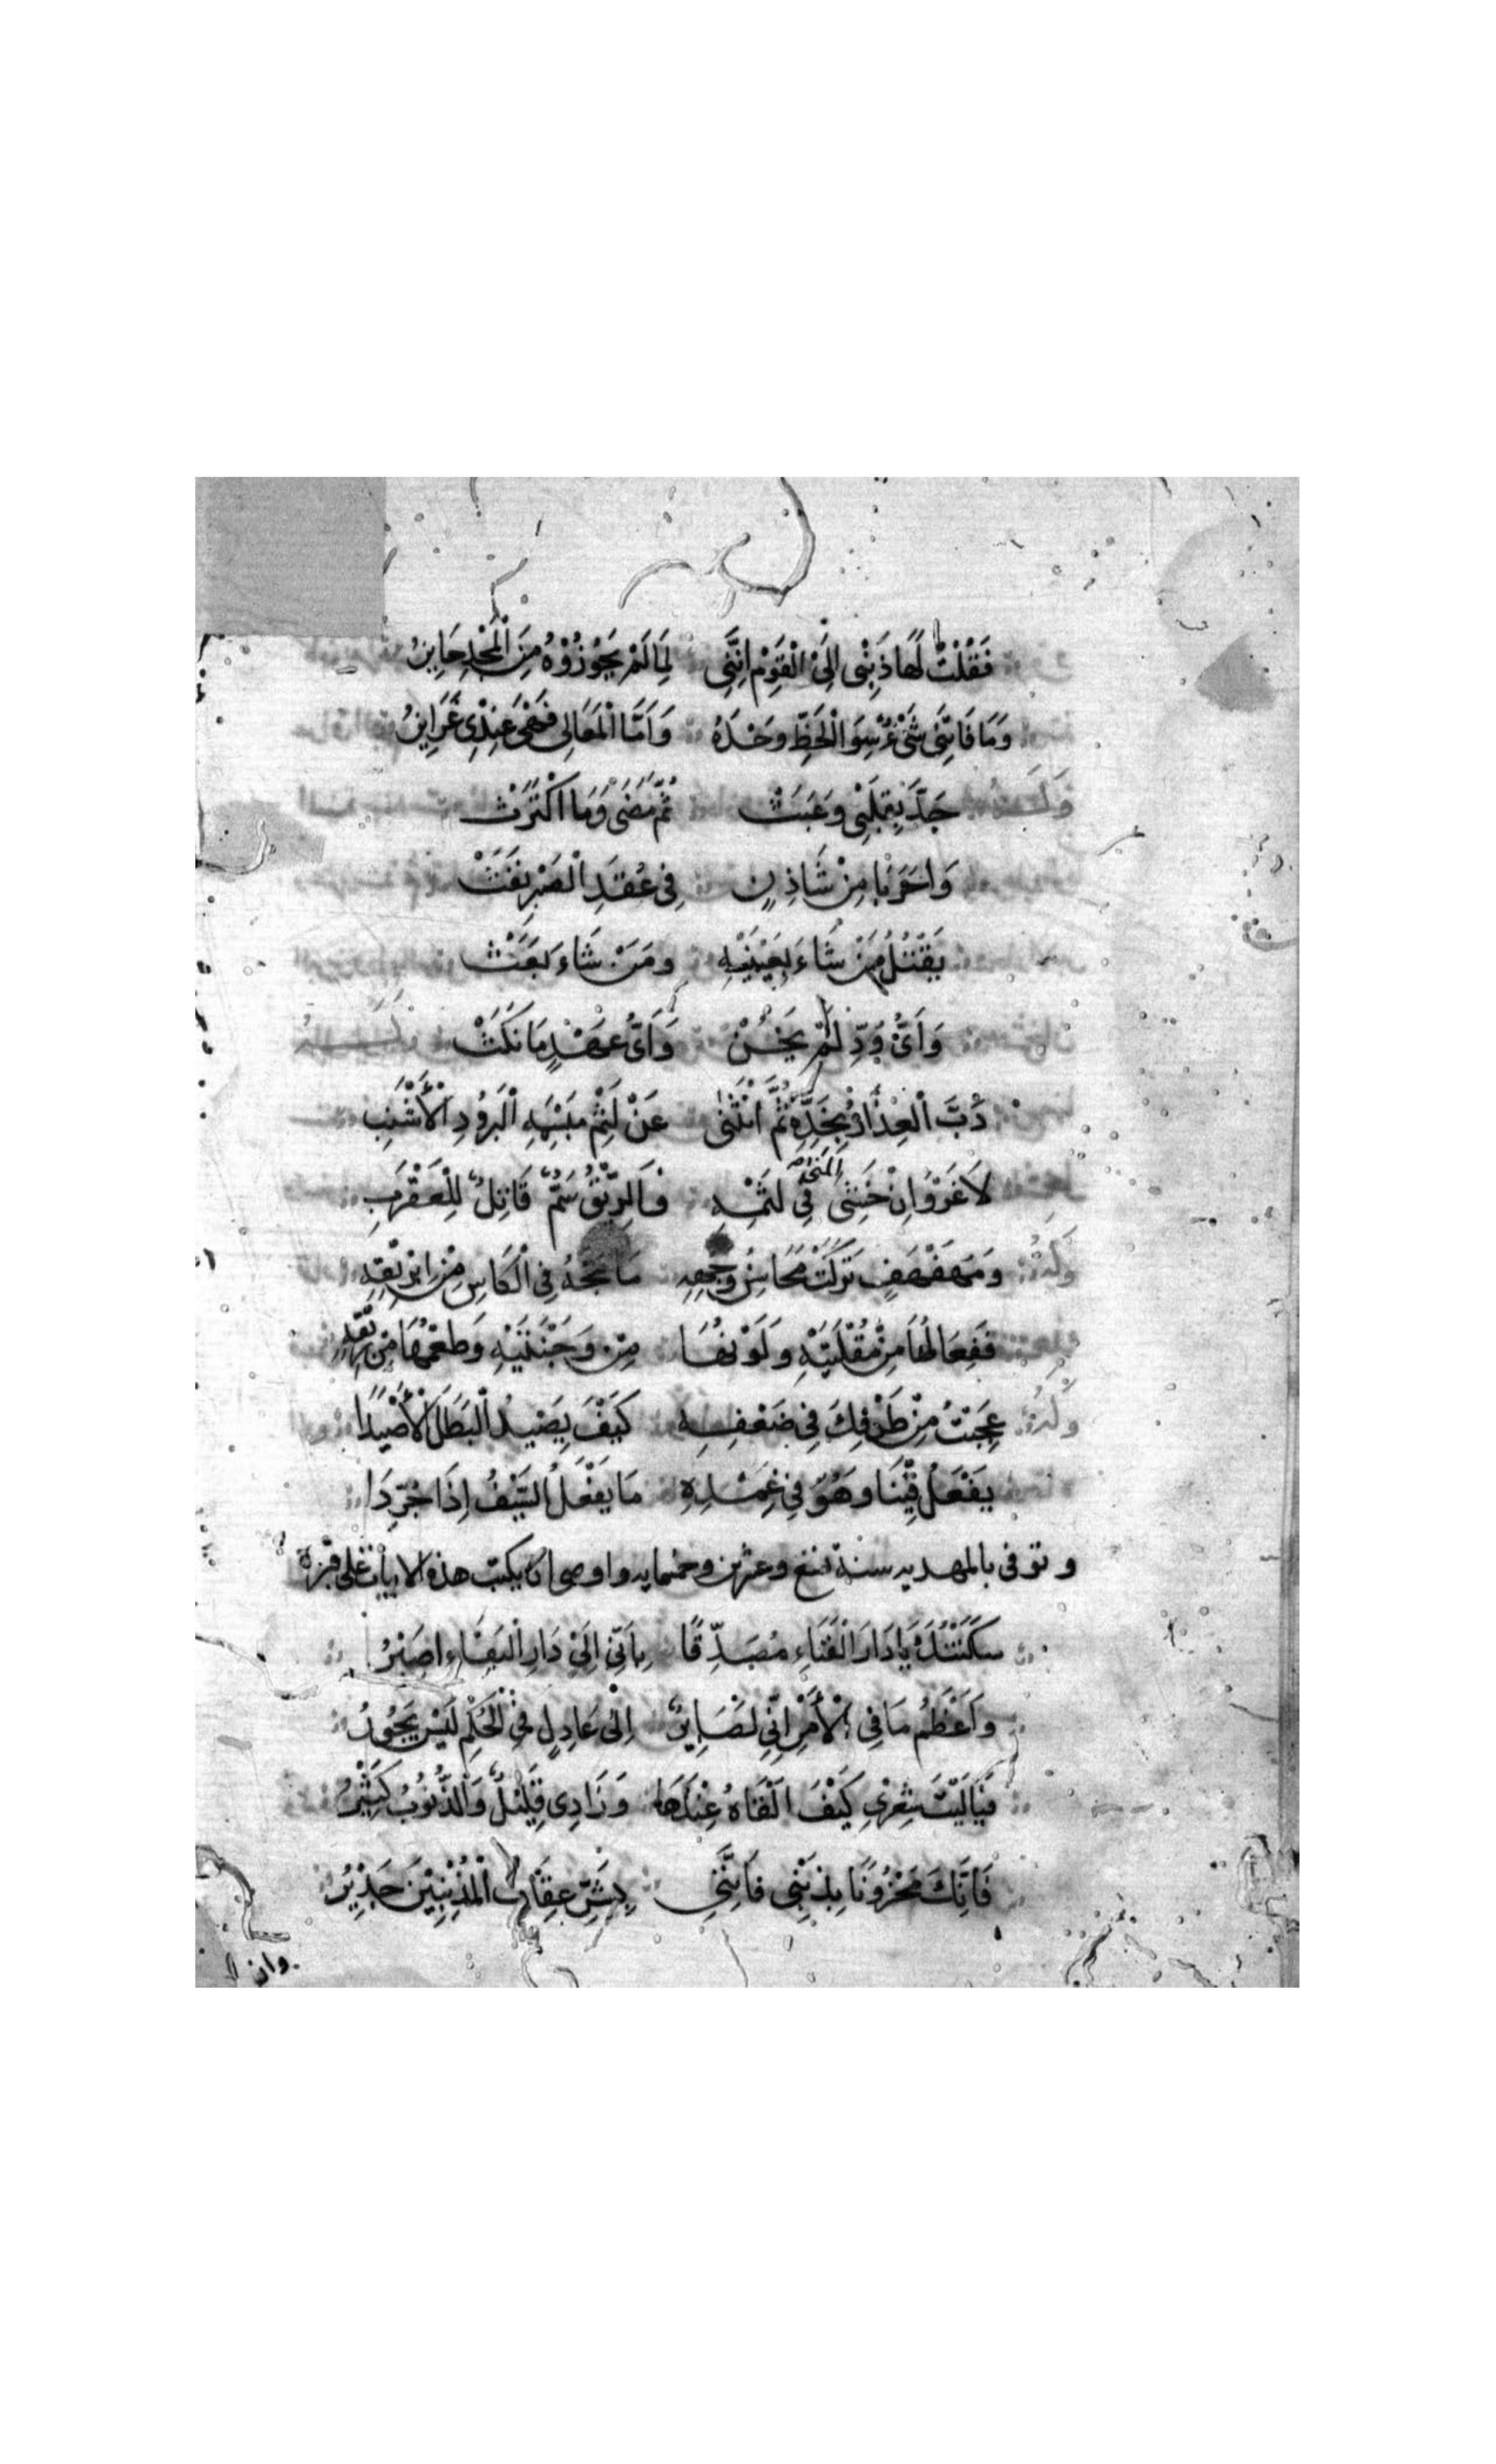 فَقُلْتُ لَهَا ذَنْبِى اِلَىْ الْقَوْمِ اِنَّنِى لِمَا لَمْ يَحُوْزُوْهُ مِنَ الْمَجْدِ حَايِزُ
وَمَا فَاتَنِى شَىْءٌ سِوَ الْحَظِّ وَحْدَهُ وَاَمَّا الْمَعَالِى فَهْىَ عِنْدِىْ غَرَايِزُ
وَلَهُ جَدَّ بِقَلْبِى وَعَبَثْ ثُمَّ مَضَى وَمَا اكْتَرَثْ
وَاحَرَبَا مِنْ شَاذِنٍ فِى عُقَدِ الصَّبْرِ نَفَثْ
يَقْتُلُ مَنْ شَاءَ بِعَيْنَيْهِ وَمَنْ شَاءَ بَعَثْ
وَاَىُّ وُدٍّ لَمْ يَخُنْ وَاَىُّ عَهْدٍ مَا نَكَثْ
دَبَّ الْعِذَارُ بِخَدِّهِ ثُمَّ انْثَنَى عَنْ لَثْمِ مَبْسِمِهِ الْبَرُودِ الْأَشْنَبِ
لَا غَرْوَ اِنْ خَشِىَ فِى لَثْمِهِ فَالرِّيْقُ سُمٌّ قَاتِلٌ لِلْعَقْرَبِ
وَلَهُ وَمُهَفْهَفٍ تَرَكَتْ مَحَاسِنُ وَجْهِهِ مَا مَجَّهُ فِى الْكَاسِ مِنْ اِبْرِيْقِهِ
فَفِعَالُهَا مِنْ مُقْلَتَيْهِ وَلَوْنُهَا مِنْ وَجْنَتَيْهِ وَطَعْمُهَا مِنْ رِيْقِهِ
وَلَهُ عَجِبْتُ مِنْ طَرْفِكَ فِى ضَعْفِهِ كَيْفَ يَصِيْدُ الْبَطَلَ الْأَصْيَدَا
يَفْعَلُ فِيْنَا وَهُوَ فِى غِمْدِهِ مَا يَفْعَلُ السَّيْفُ اِذَا جُرِّدَا
وتوفى بالمهديه سنة تسع وعشرين وخمسمايه واوصى ان يكتب هذه الابيات على قبره
سَكَنْتُكِ يَا دَارَ الْفَنَاءِ مُصَدِّقًا بِاَنِّى اِلَىْ دَارِ الْبَقَاءِ اصَيْرُ
وَاَعْظَمُ مَا فِى الْأَمْرِ اِنِّى لَصَايِرٌ اِلَى عَادِلٍ فِى الْحُكْمِ لَيْسَ يَجُوْرُ
فَيَا لَيْتَ شِعْرِى كَيْفَ الْقَاهُ عِنْدَهَا وَزَادِى قَلِيْلٌ وَالذُّنُوْبُ كَثِيْرُ
فَاِنْ اَكُ مَجْزُوْنًا بِذَنْبِى فَاِنَّنِى بِشَرِّ عِقَابِ الْمُذْنِبِيْنَ جَدِيْرُ
وان